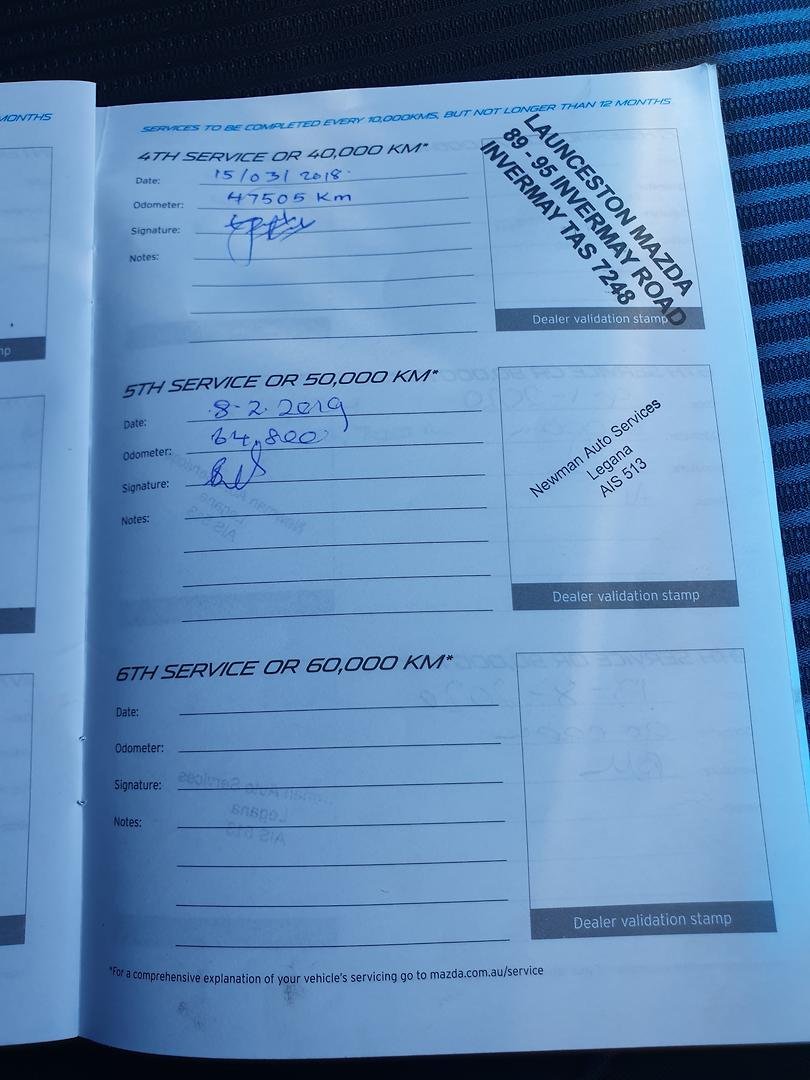 MONTHS
SERVICES TO BE COMPLETED EVERY 10,000KMS, BUT NOT LONGER THAN 12 MONTHS
4TH SERVICE OR 40,000 KM*
Date: 15/03/2018
Odometer: 47505 Km
Signature:
Notes:
LAUNCESTON MAZDA
89 - 95 INVERMAY ROAD
INVERMAY TAS 7248
Dealer validation stamp
5TH SERVICE OR 50,000 KM*
Date: 8-2-2019
Odometer: 64,800
Signature:
Notes:
Newman Auto Services
Legana
AIS 513
Dealer validation stamp
6TH SERVICE OR 60,000 KM*
Date:
Odometer:
Signature:
Notes:
Dealer validation stamp
*For a comprehensive explanation of your vehicle's servicing go to mazda.com.au/service